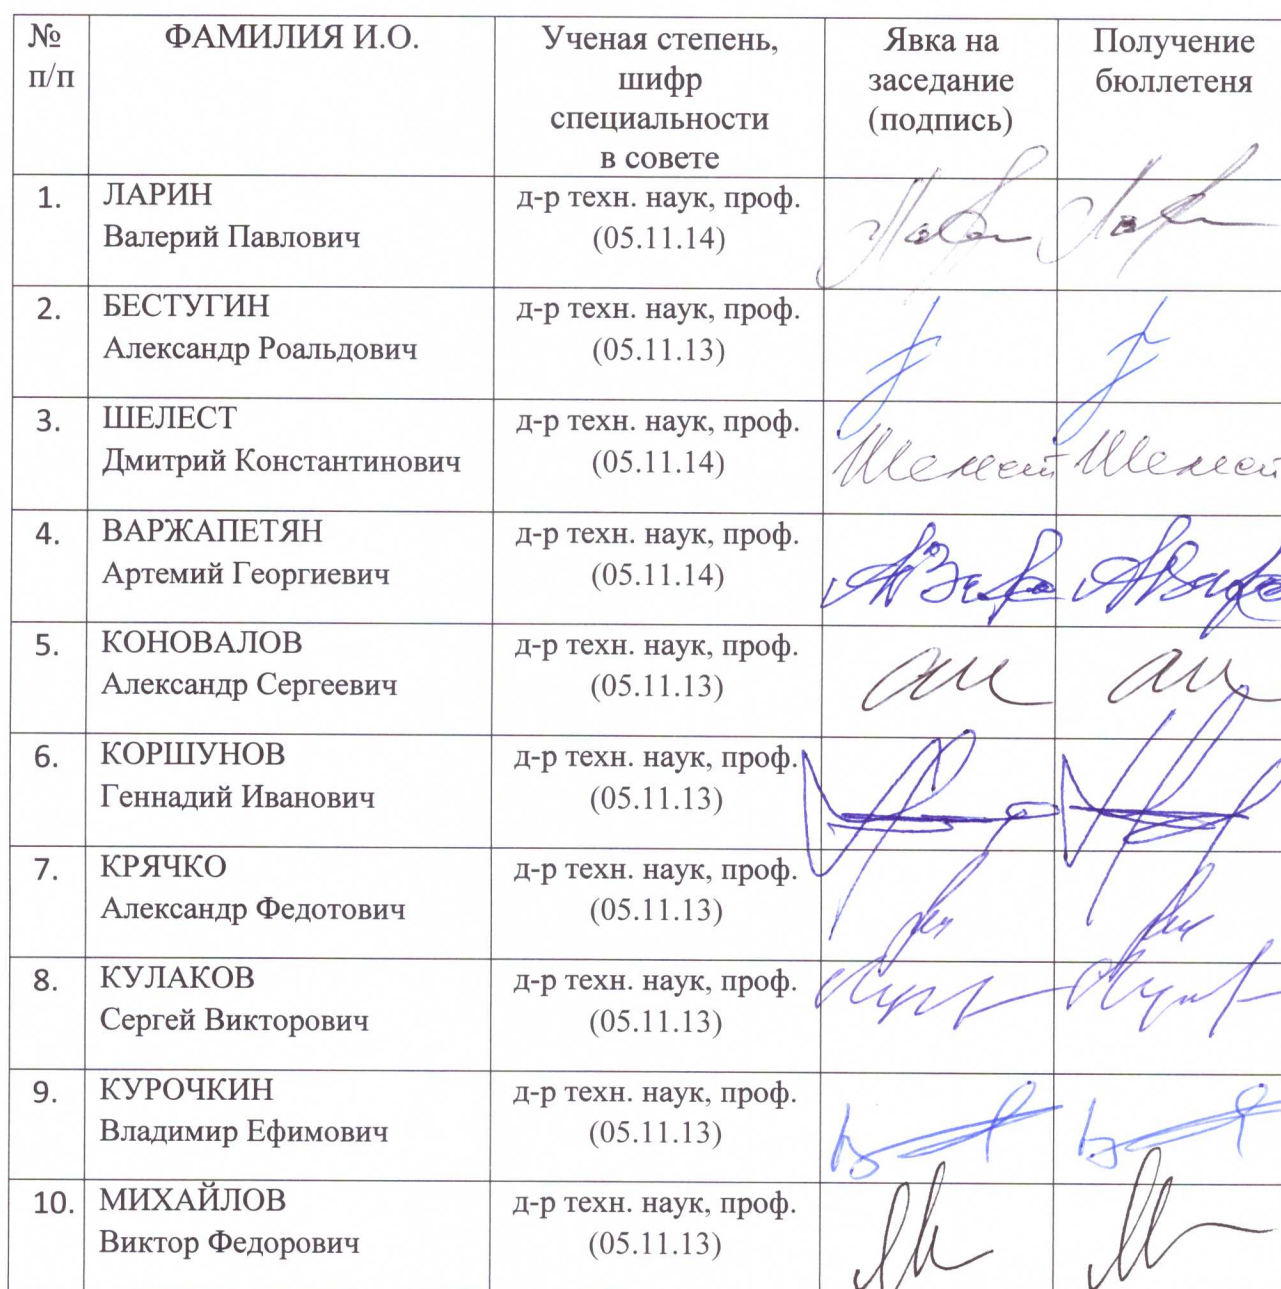 № п/п
ФАМИЛИЯ И.О.
Ученая степень,
шифр
специальности
в совете
Явка на
заседание
(подпись)
Получение
бюллетеня
1.
ЛАРИН
Валерий Павлович
д-р техн. наук, проф.
(05.11.14)
2.
БЕСТУГИН
Александр Роальдович
д-р техн. наук, проф.
(05.11.13)
3.
ШЕЛЕСТ
Дмитрий Константинович
д-р техн. наук, проф.
(05.11.14)
Шелест Шелест
4.
ВАРЖАПЕТЯН
Артемий Георгиевич
д-р техн. наук, проф.
(05.11.14)
5.
КОНОВАЛОВ
Александр Сергеевич
д-р техн. наук, проф.
(05.11.13)
6.
КОРШУНОВ
Геннадий Иванович
д-р техн. наук, проф.
(05.11.13)
7.
КРЯЧКО
Александр Федотович
д-р техн. наук, проф.
(05.11.13)
8.
КУЛАКОВ
Сергей Викторович
д-р техн. наук, проф.
(05.11.13)
9.
КУРОЧКИН
Владимир Ефимович
д-р техн. наук, проф.
(05.11.13)
10.
МИХАЙЛОВ
Виктор Федорович
д-р техн. наук, проф.
(05.11.13)